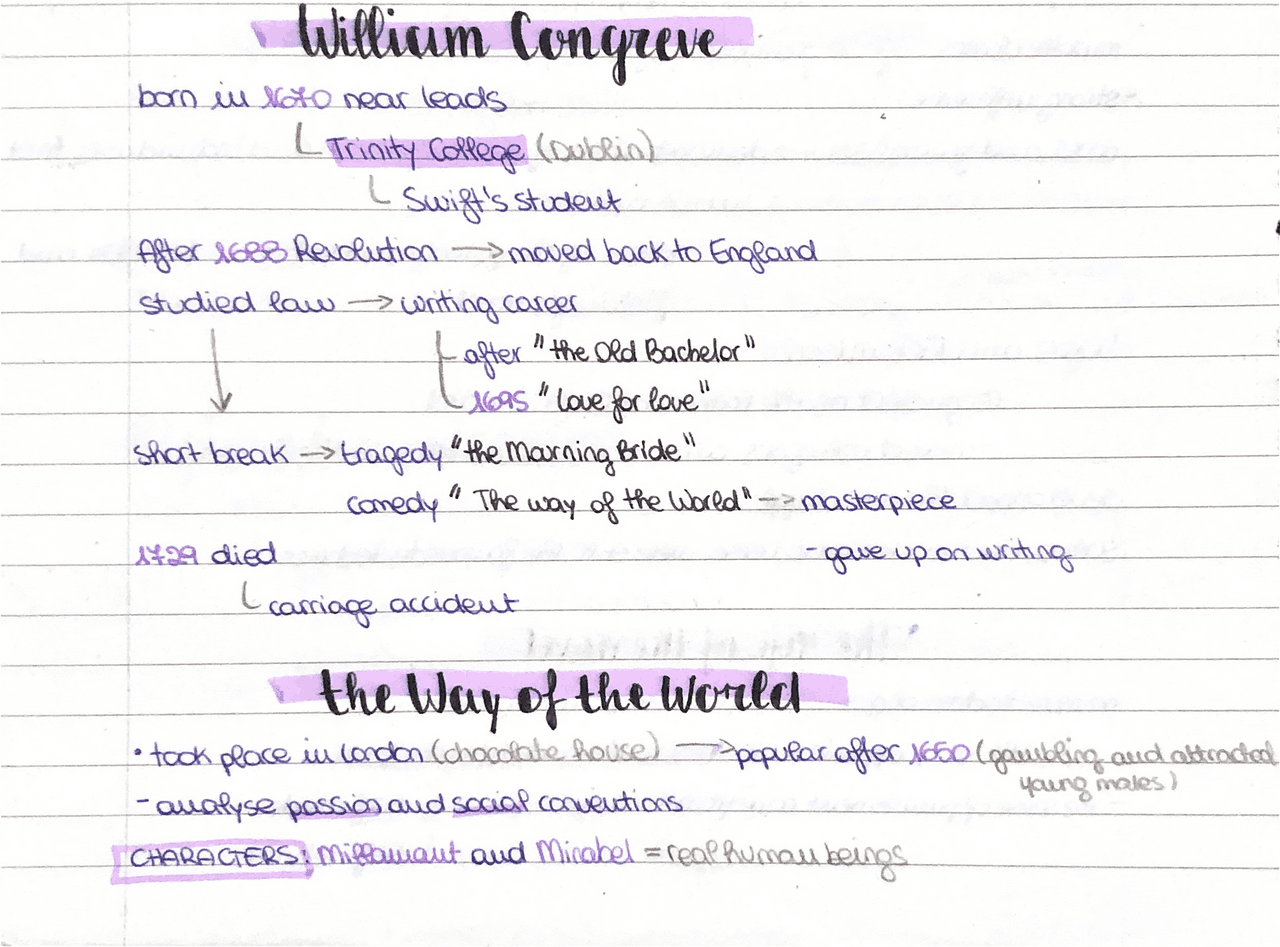 William Congreve
born in 1670 near leads
Trinity College (Dublin)
Swift's student
After 1688 Revolution → moved back to England
studied law → writing career
after "the Old Bachelor"
1695 "Love for love"
short break → tragedy "the Mourning Bride"
comedy "The way of the World" → masterpiece
1729 died - gave up on writing
carriage accident
the Way of the World
• took place in London (chocolate house) → popular after 1650 (gambling and attracted
young males)
- analyse passion and social conventions
CHARACTERS: Millamant and Mirabel = real human beings